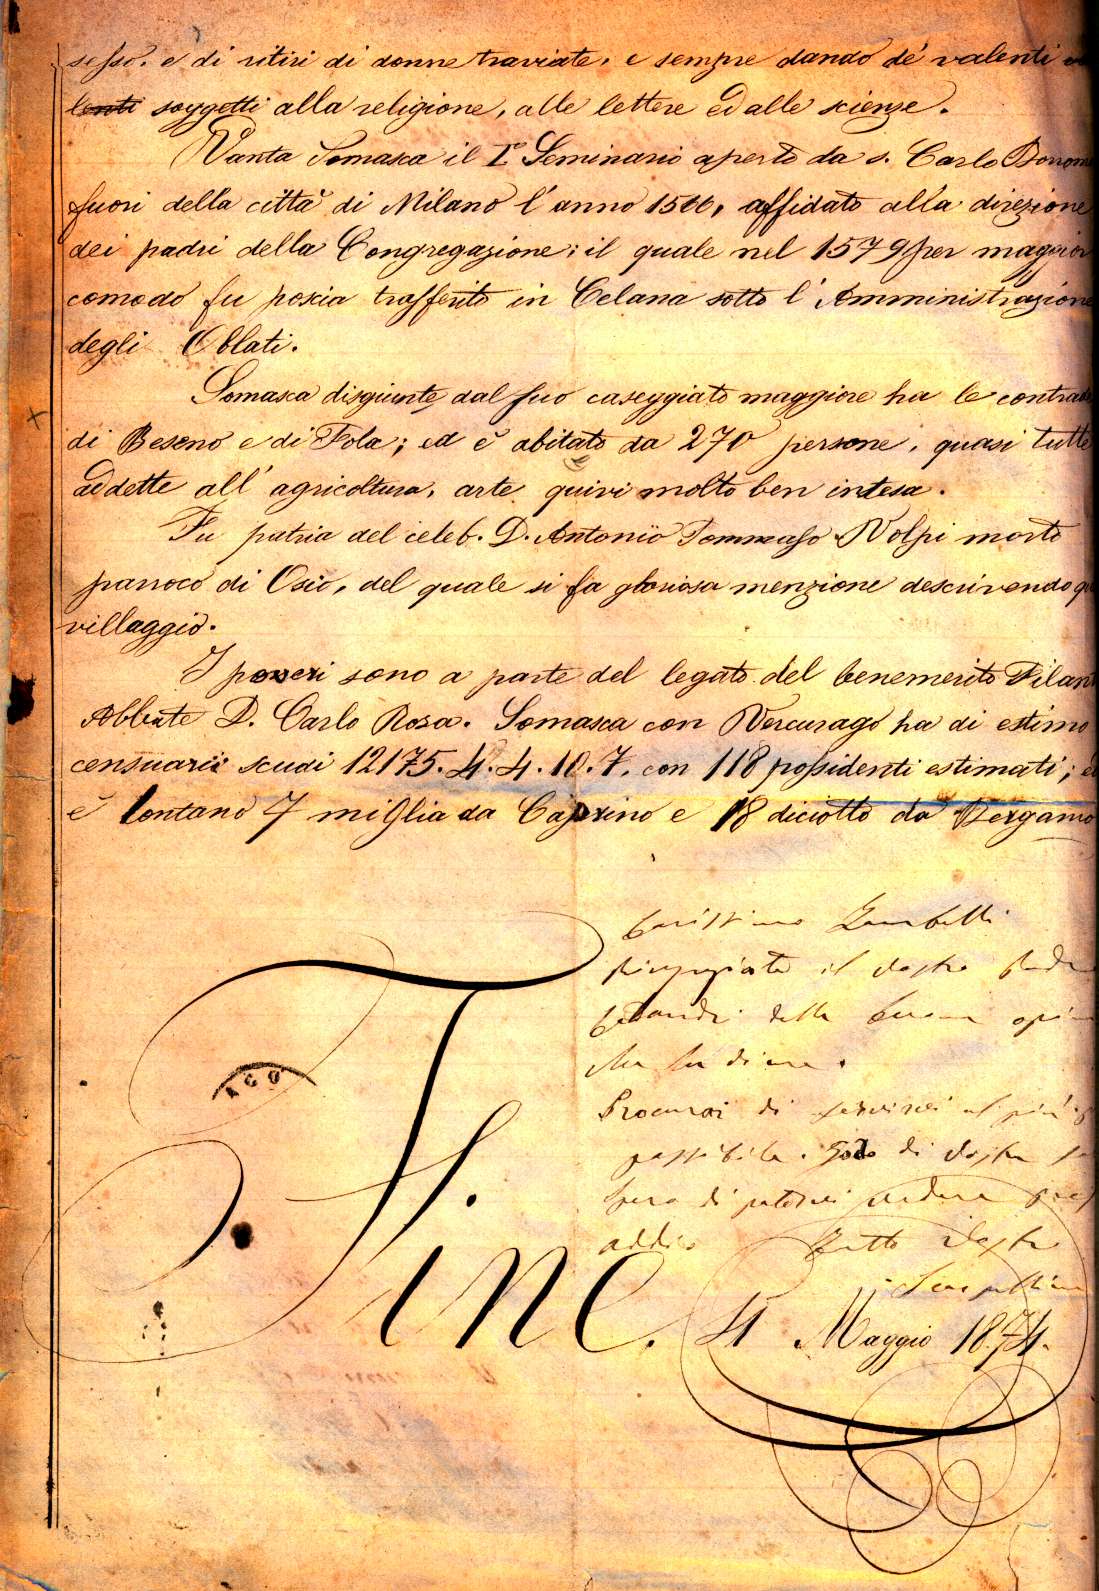 sesso. e di ritiri di donne traviate, e sempre dando de' valenti
lenti soggetti alla religione, alle lettere ed alle scienze.
Vanta Somasca il I.° Seminario aperto da s. Carlo Borrom
fuori della città di Milano l'anno 1566, affidato alla direzione
dei padri della Congregazione; il quale nel 1579 per maggior
comodo fu poscia trasferito in Celana sotto l'Amministrazione
degli Oblati.
Somasca disgiunte dal suo caseggiato maggiore ha le contrade
di Beseno e di Fola; ed è abitato da 270 persone, quasi tutte
addette all'agricoltura, arte quivi molto ben intesa.
Fu patria del celeb. D. Antonio Tommaso Volpi morto
parroco di Osio, del quale si fa gloriosa menzione descrivendo qu
villaggio.
I poveri sono a parte del legato del benemerito Filant
Abbate D. Carlo Rosa. Somasca con Vercurago ha di estimo
censuario scudi 12175.4.4.10.7. con 118 possidenti estimati; ed
è lontano 7 miglia da Caprino e 18 diciotto da Bergamo
Carissimo Zambelli
il vostro
della buona
Procurai di al più
possibile. Godo di vostra
Spero di potervi vedere
addio Tutto vostro
Fine. 4 Maggio 1874.